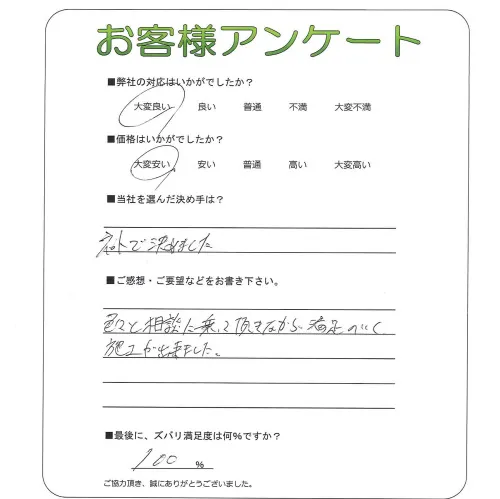 お客様アンケート
■弊社の対応はいかがでしたか？
大変良い 良い 普通 不満 大変不満
■価格はいかがでしたか？
大変安い 安い 普通 高い 大変高い
■当社を選んだ決め手は？
ネットで決めました
■ご感想・ご要望などをお書き下さい。
色々と相談に乗って頂きながら満足のいく
施工が出来ました。
■最後に、ズバリ満足度は何%ですか？
100 %
ご協力頂き、誠にありがとうございました。